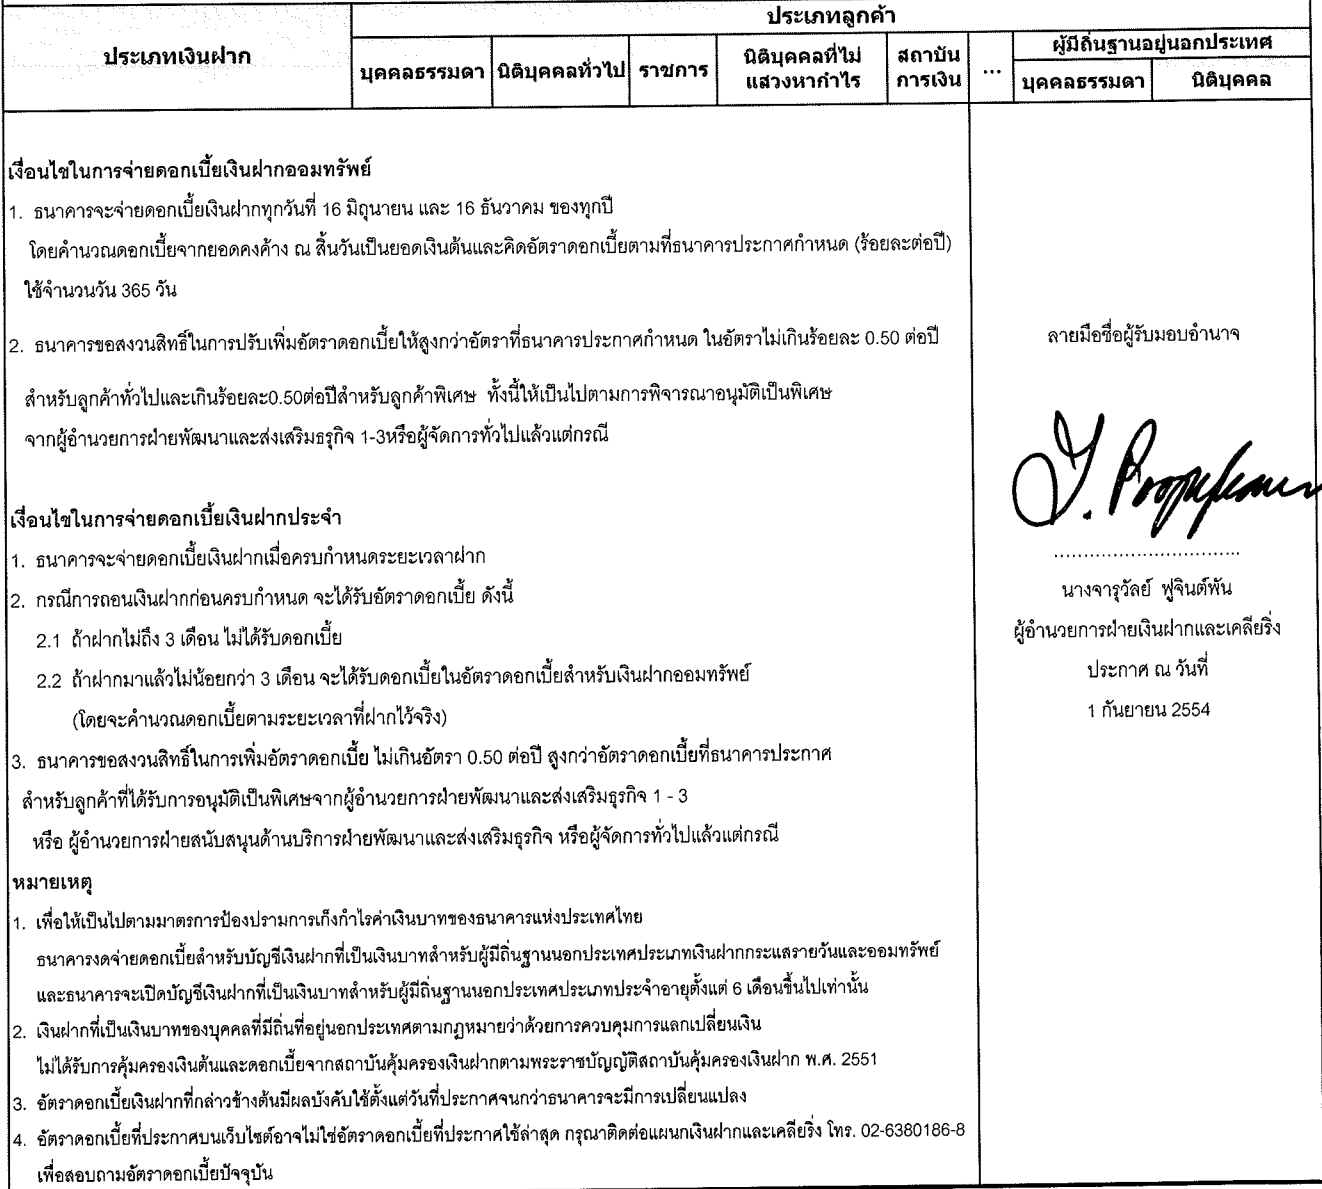 ประเภทลูกค้า
ประเภทเงินฝาก
ผู้มีถิ่นฐานอยู่นอกประเทศ
บุคคลธรรมดา นิติบุคคลทั่วไป ราชการ นิติบุคคลที่ไม่แสวงหากำไร สถาบันการเงิน ... บุคคลธรรมดา นิติบุคคล
เงื่อนไขในการจ่ายดอกเบี้ยเงินฝากออมทรัพย์
1. ธนาคารจะจ่ายดอกเบี้ยเงินฝากทุกวันที่ 16 มิถุนายน และ 16 ธันวาคม ของทุกปี
โดยคำนวณดอกเบี้ยจากยอดคงค้าง ณ สิ้นวันเป็นยอดเงินต้นและคิดอัตราดอกเบี้ยตามที่ธนาคารประกาศกำหนด (ร้อยละต่อปี)
ใช้จำนวนวัน 365 วัน
2. ธนาคารขอสงวนสิทธิ์ในการปรับเพิ่มอัตราดอกเบี้ยให้สูงกว่าอัตราที่ธนาคารประกาศกำหนด ในอัตราไม่เกินร้อยละ 0.50 ต่อปี
สำหรับลูกค้าทั่วไปและเกินร้อยละ0.50ต่อปีสำหรับลูกค้าพิเศษ ทั้งนี้ให้เป็นไปตามการพิจารณาอนุมัติเป็นพิเศษ
จากผู้อำนวยการฝ่ายพัฒนาและส่งเสริมธรุกิจ 1-3หรือผู้จัดการทั่วไปแล้วแต่กรณี
เงื่อนไขในการจ่ายดอกเบี้ยเงินฝากประจำ
1. ธนาคารจะจ่ายดอกเบี้ยเงินฝากเมื่อครบกำหนดระยะเวลาฝาก
2. กรณีการถอนเงินฝากก่อนครบกำหนด จะได้รับอัตราดอกเบี้ย ดังนี้
2.1 ถ้าฝากไม่ถึง 3 เดือน ไม่ได้รับดอกเบี้ย
2.2 ถ้าฝากมาแล้วไม่น้อยกว่า 3 เดือน จะได้รับดอกเบี้ยในอัตราดอกเบี้ยสำหรับเงินฝากออมทรัพย์
(โดยจะคำนวณดอกเบี้ยตามระยะเวลาที่ฝากไว้จริง)
3. ธนาคารขอสงวนสิทธิ์ในการเพิ่มอัตราดอกเบี้ย ไม่เกินอัตรา 0.50 ต่อปี สูงกว่าอัตราดอกเบี้ยที่ธนาคารประกาศ
สำหรับลูกค้าที่ได้รับการอนุมัติเป็นพิเศษจากผู้อำนวยการฝ่ายพัฒนาและส่งเสริมธุรกิจ 1 - 3
หรือ ผู้อำนวยการฝ่ายสนับสนุนด้านบริการฝ่ายพัฒนาและส่งเสริมธุรกิจ หรือผู้จัดการทั่วไปแล้วแต่กรณี
หมายเหตุ
1. เพื่อให้เป็นไปตามมาตรการป้องปรามการเก็งกำไรค่าเงินบาทของธนาคารแห่งประเทศไทย
ธนาคารงดจ่ายดอกเบี้ยสำหรับบัญชีเงินฝากที่เป็นเงินบาทสำหรับผู้มีถิ่นฐานนอกประเทศประเภทเงินฝากกระแสรายวันและออมทรัพย์
และธนาคารจะเปิดบัญชีเงินฝากที่เป็นเงินบาทสำหรับผู้มีถิ่นฐานนอกประเทศประเภทประจำอายุตั้งแต่ 6 เดือนขึ้นไปเท่านั้น
2. เงินฝากที่เป็นเงินบาทของบุคคลที่มีถิ่นที่อยู่นอกประเทศตามกฎหมายว่าด้วยการควบคุมการแลกเปลี่ยนเงิน
ไม่ได้รับการคุ้มครองเงินต้นและดอกเบี้ยจากสถาบันคุ้มครองเงินฝากตามพระราชบัญญัติสถาบันคุ้มครองเงินฝาก พ.ศ. 2551
3. อัตราดอกเบี้ยเงินฝากที่กล่าวข้างต้นมีผลบังคับใช้ตั้งแต่วันที่ประกาศจนกว่าธนาคารจะมีการเปลี่ยนแปลง
4. อัตราดอกเบี้ยที่ประกาศบนเว็บไซต์อาจไม่ใช่อัตราดอกเบี้ยที่ประกาศใช้ล่าสุด กรุณาติดต่อแผนกเงินฝากและเคลียริ่ง โทร. 02-6380186-8
เพื่อสอบถามอัตราดอกเบี้ยปัจจุบัน
ลายมือชื่อผู้รับมอบอำนาจ
................................
นางจารุวัลย์ ฟูจินต์พัน
ผู้อำนวยการฝ่ายเงินฝากและเคลียริ่ง
ประกาศ ณ วันที่
1 กันยายน 2554